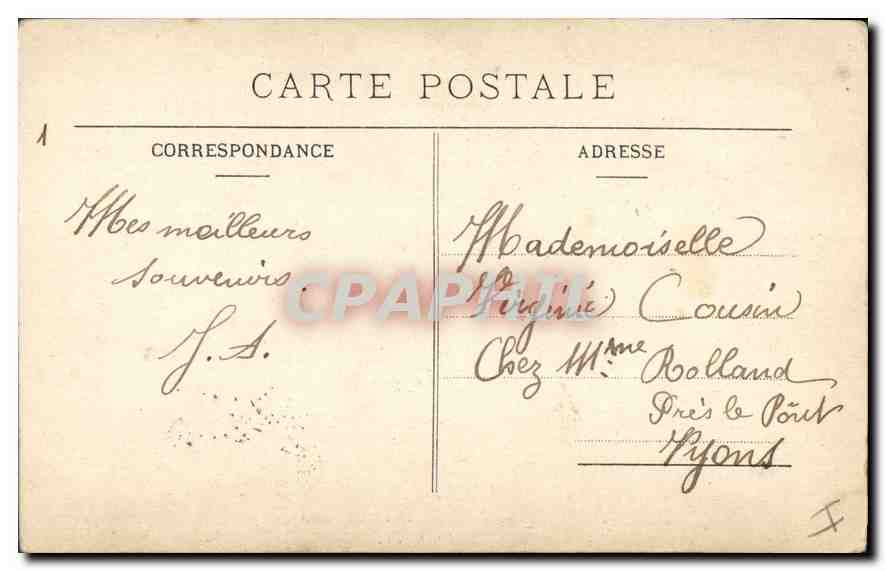 CARTE POSTALE
1
CORRESPONDANCE
Mes meilleurs
souvenirs.
J. A.
ADRESSE
Mademoiselle
Virginie Cousin
Chez Mme Rolland
Près le Pont
Nyons
CPAPHIL